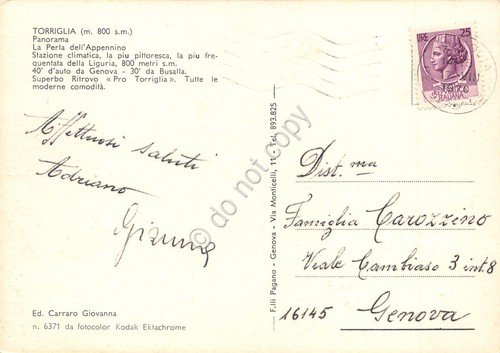 TORRIGLIA (m. 800 s.m.)
Panorama
La Perla dell'Appennino
Stazione climatica, la piu pittoresca, la piu fre-
quentata della Liguria, 800 metri s.m.
40' d'auto da Genova - 30' da Busalla.
Superbo Ritrovo «Pro Torriglia». Tutte le
moderne comodità.
Affettuosi saluti
Adriano
Gianna
Ed. Carraro Giovanna
n. 6371 da fotocolor Kodak Ektachrome
F.lli Pagano - Genova - Via Monticelli, 11 - Tel. 893.825
© do not copy
LIRE 25
ITALIANA
Dist.ma
Famiglia Carozzino
Viale Cambiaso 3 int 8
16145 Genova